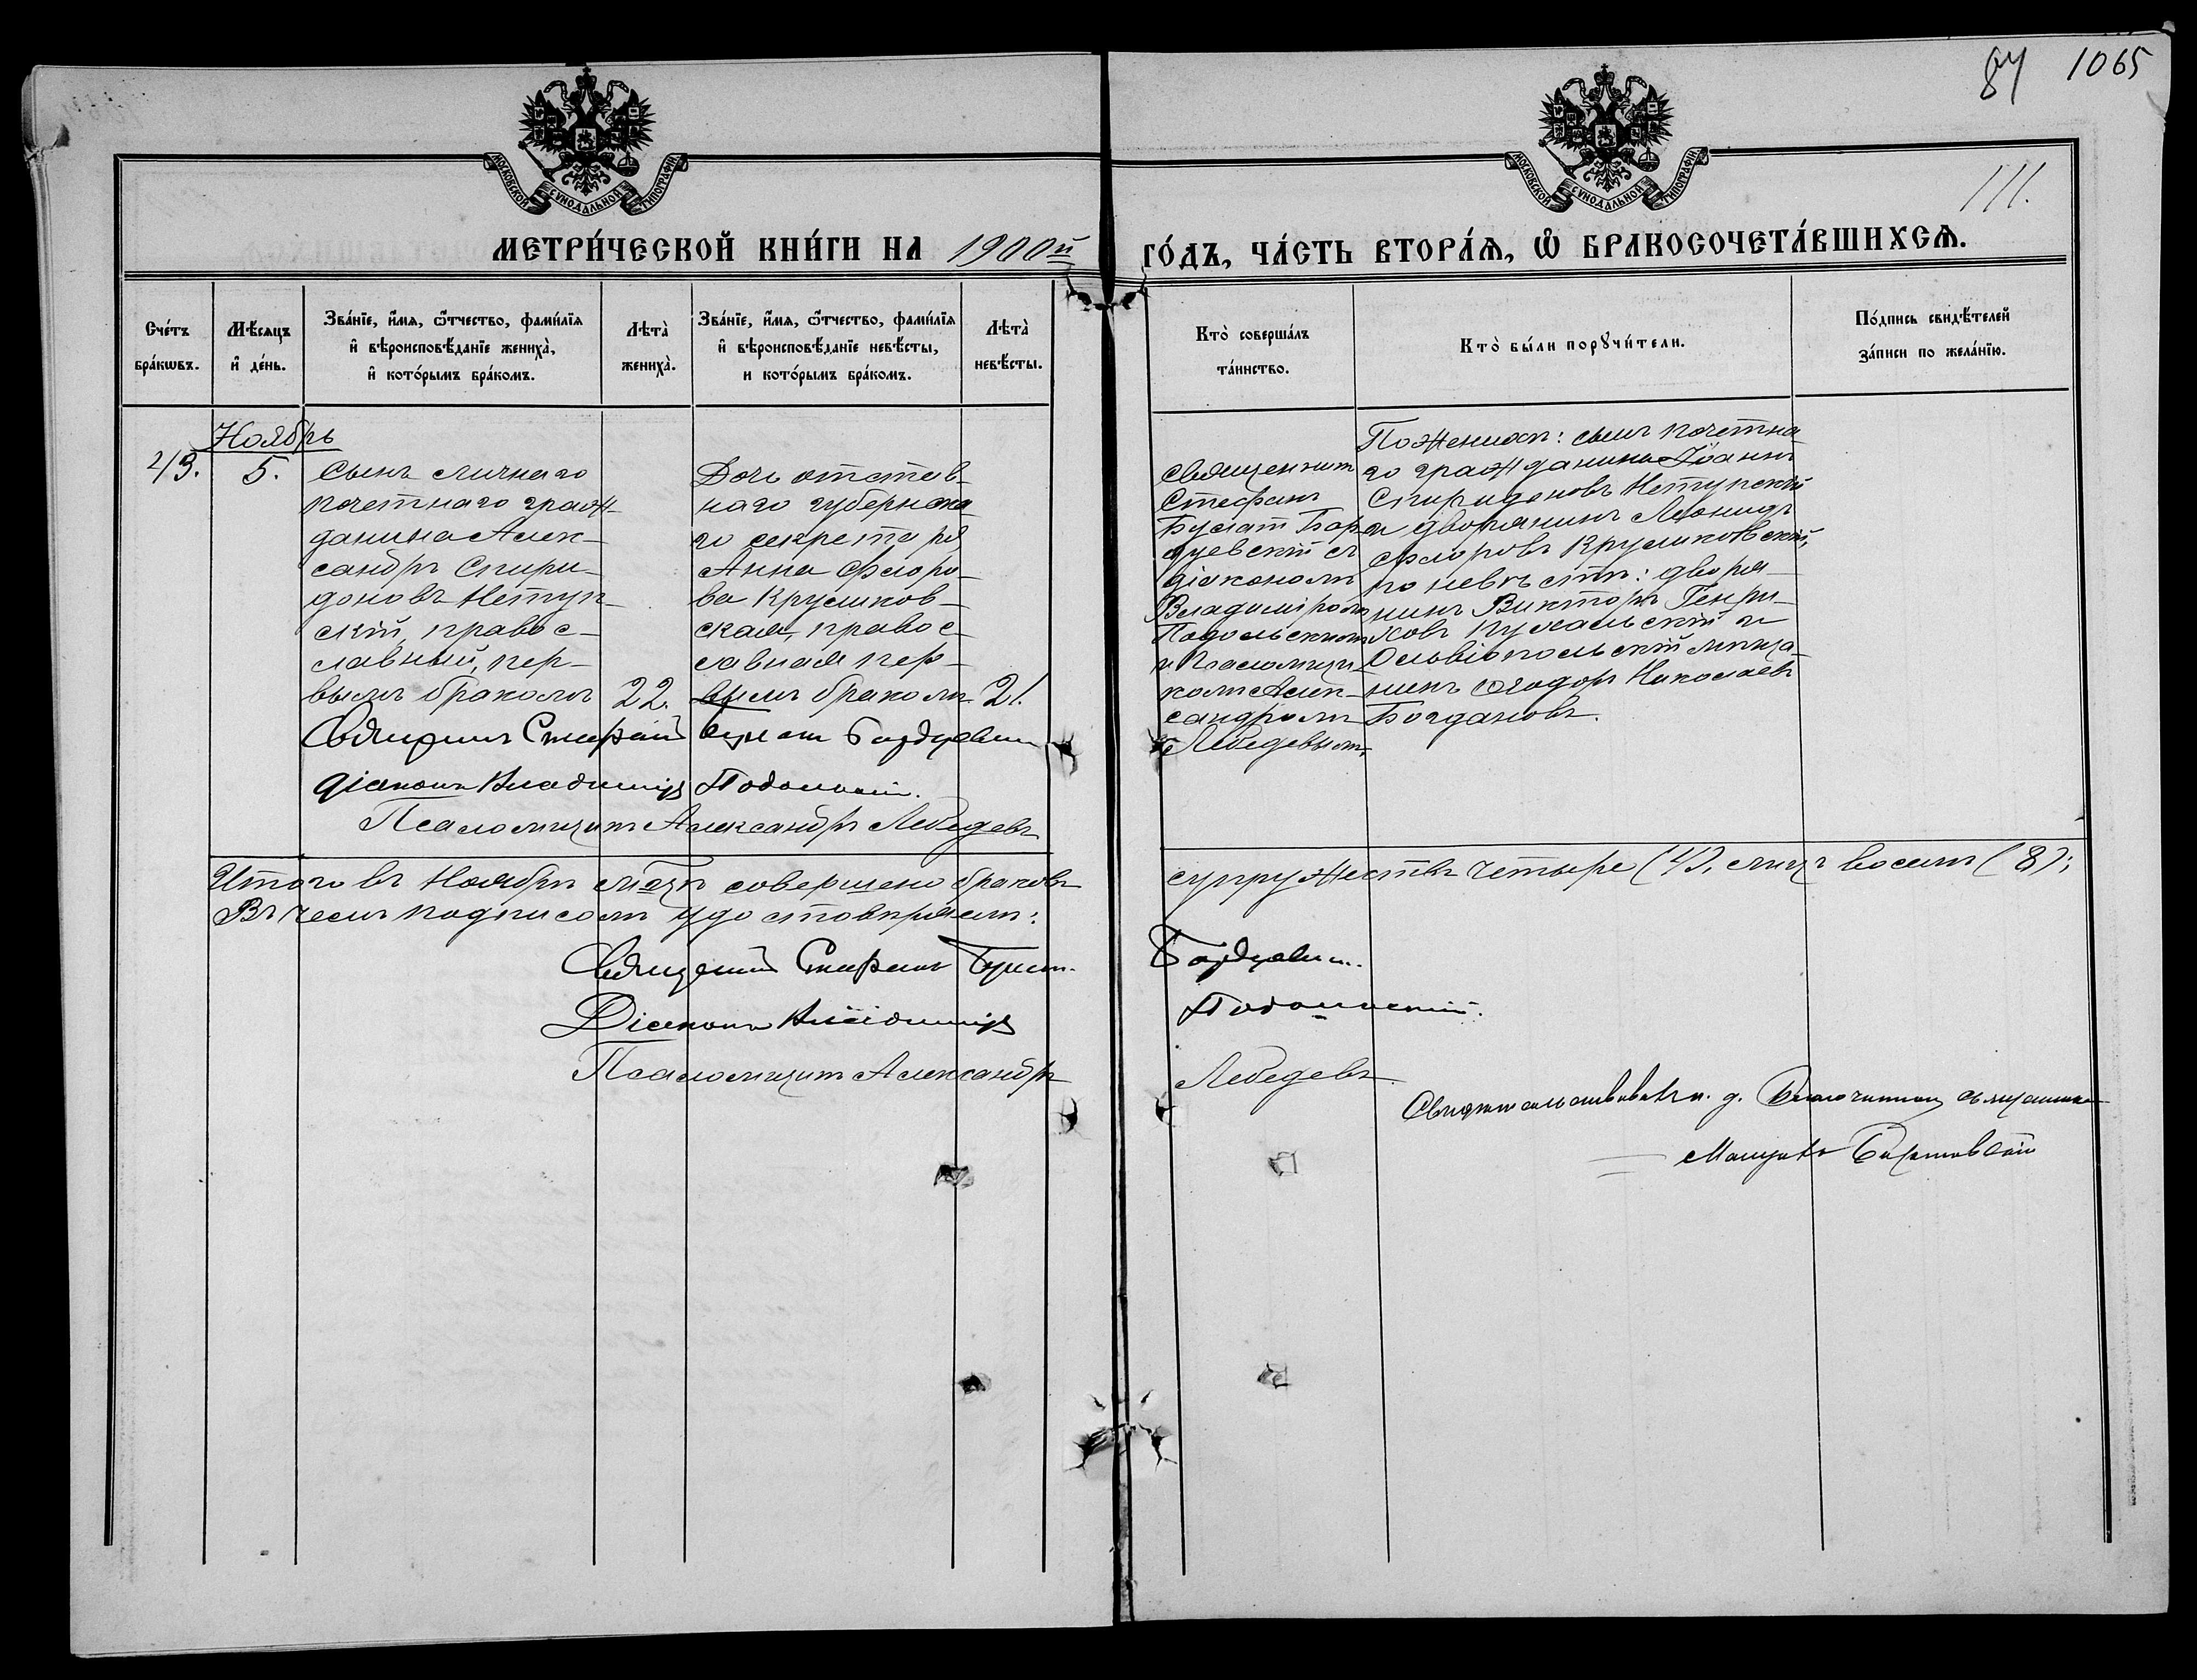 84 1065
МОСКОВСКОЙ СѴНОДАЛЬНОЙ ТИПОГРАФІИ.
МОСКОВСКОЙ СѴНОДАЛЬНОЙ ТИПОГРАФІИ.
111.
МЕТРИ́ЧЕСКОЙ КНИ́ГИ НА 1900й ГО́ДЪ, ЧА́СТЬ ВТОРА́Ѧ, Ѽ БРАКОСОЧЕТА́ВШИХСѦ.
Сче́тъ
бра́кѡвъ.
Мѣ́сяцъ
и҆ де́нь.
Зва́нїе, и҆́мѧ, ѻ҆́тчество, фами́лїѧ
и҆ вѣроисповѣ́данїе жениха̀,
и҆ кото́рымъ бра́комъ.
Лѣта̀
жениха̀.
Зва́нїе, и҆́мѧ, ѻ҆́тчество, фами́лїѧ
и҆ вѣроисповѣ́данїе невѣ́сты,
и кото́рымъ бра́комъ.
Лѣта̀
невѣ́сты.
Кто̀ соверша́лъ
та́инство.
Кто̀ бы́ли порꙋчи́тели.
По́дпись свидѣ́телей
за́писи по жела́нїю.
Ноябрь
43.
5.
Сынъ личнаго
почетнаго граж-
данина Алек-
сандръ Спири-
доновъ Нетуп-
скій, правос-
лавный, пер-
вымъ бракомъ
22.
Дочь отстав-
наго губернска
го секретаря
Анна Флоро-
ва Круликов-
ская, правос-
лавная пер-
вымъ бракомъ
21.
Священник
Стефанъ
Булат Бор-
дуевскій съ
діакономъ
Владиміромъ
Подольскимъ
и Псаломщи-
комъ Алек-
сандромъ
Лебедевымъ,
По женихѣ: сынъ почетна
го гражданина Іоаннъ
Спиридоновъ Нетупскій
и дворянинъ Леонидъ
Флоровъ Круликовскій,
по невѣстѣ: дворя-
нинъ Викторъ Генри-
ховъ и
Ольвіопольскій мѣща-
нинъ Ѳеодоръ Николаевъ
Богдановъ.
Священникъ Стефанъ Булат
діаконъ Владиміръ Подольскій.
Псаломщикъ Александръ Лебедевъ
Итого въ Ноябрѣ м-цѣ совершено браковъ супружествъ четыре (4), лицъ восемь (8);
Въ чемъ подписомъ удостовѣряемъ:
Священникъ Стефанъ Булат-
Діаконъ Владиміръ Подольскій.
Псаломщикъ Александръ Лебедевъ
Свидѣтельствовалъ и. д. Благочиннаго священникъ